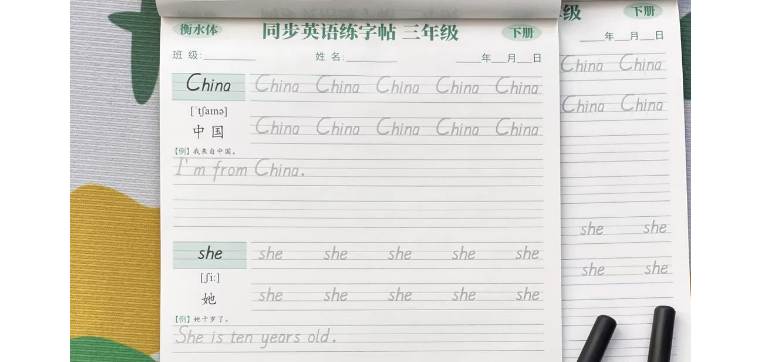 衡水体 同步英语练字帖 三年级 下册
班 级:________ 姓 名:________ ____年__月__日
China China China China China China
[ˈtʃaɪnə]
中 国 China China China China China
【例】我来自中国。
I'm from China.
she she she she she she
[ʃiː]
她 she she she she she
【例】她十岁了。
She is ten years old.
级 下册
____年__月__日
China China
China China
she she
she she